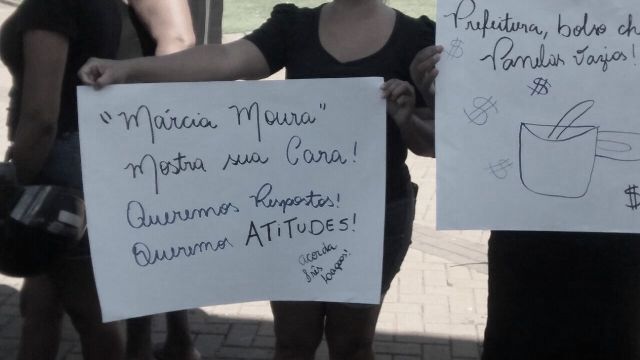 "Márcia Moura"
Mostra sua Cara!
Queremos Respostas!
Queremos ATITUDES!
acorda
três
Lagoas!
Prefeitura, bolso ch
Panelas vazias!
$
$
$
$
$